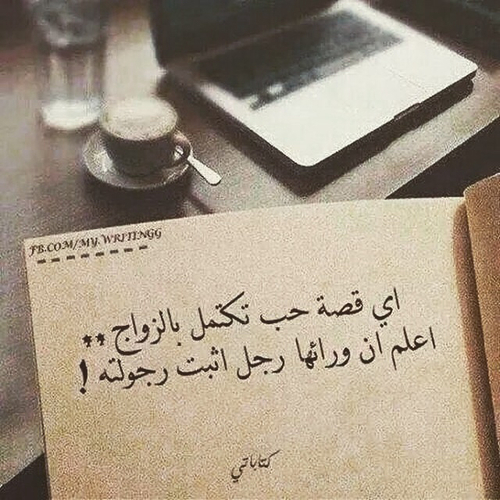 FB.COM/MY.WRITINGG
اي قصة حب تكتمل بالزواج **
اعلم ان ورائها رجل اثبت رجولته !
كتاباتي